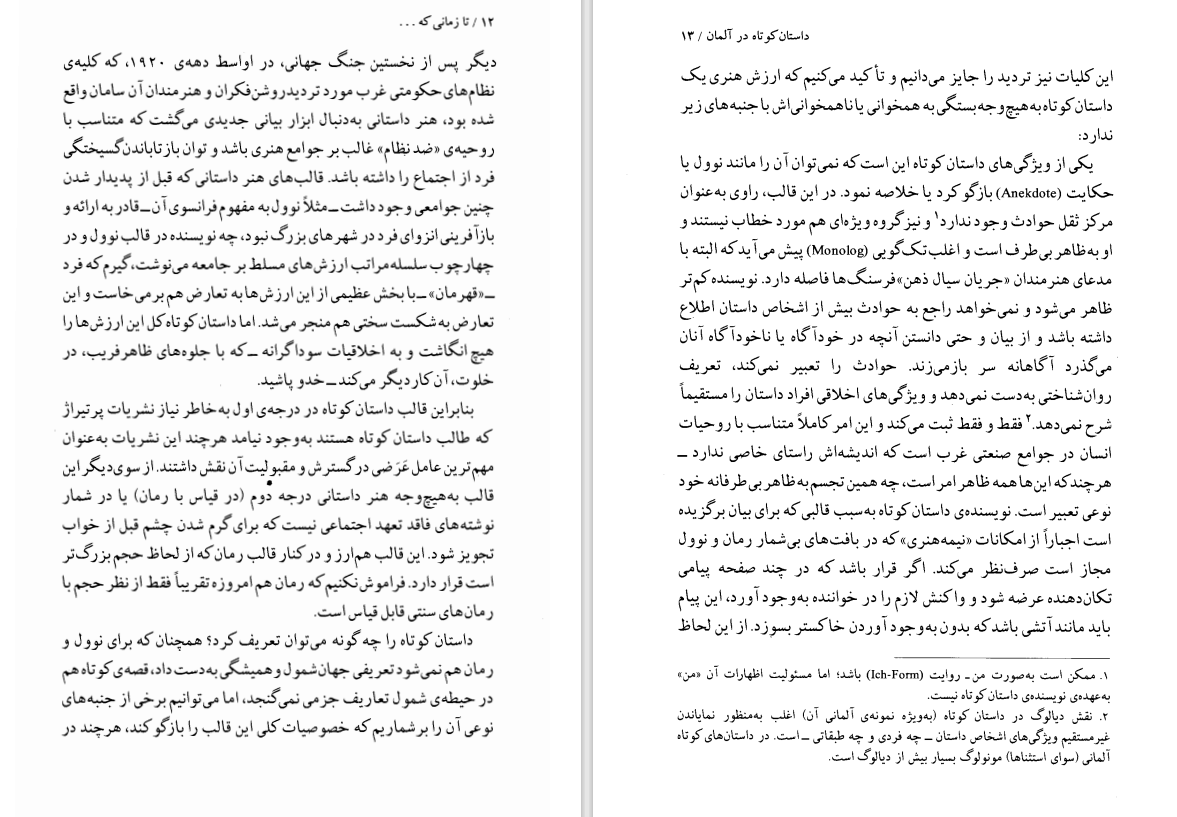 ۱۲ / تا زمانی که ...
دیگر پس از نخستین جنگ جهانی، در اواسط دهه‌ی ۱۹۲۰، که کلیه‌ی
نظام‌های حکومتی غرب مورد تردید روشن‌فکران و هنرمندان آن سامان واقع
شده بود، هنر داستانی به‌دنبال ابزار بیانی جدیدی می‌گشت که متناسب با
روحیه‌ی «ضد نظام» غالب بر جوامع هنری باشد و توان بازتاباندن گسیختگی
فرد از اجتماع را داشته باشد. قالب‌های هنر داستانی که قبل از پدیدار شدن
چنین جوامعی وجود داشت ــ مثلاً نوول به مفهوم فرانسوی آن ــ قادر به ارائه و
بازآفرینی انزوای فرد در شهرهای بزرگ نبود، چه نویسنده در قالب نوول و در
چهارچوب سلسله‌مراتب ارزش‌های مسلط بر جامعه می‌نوشت، گیرم که فرد
ــ «قهرمان» ــ با بخش عظیمی از این ارزش‌ها به تعارض هم برمی‌خاست و این
تعارض به شکست سختی هم منجر می‌شد. اما داستان کوتاه کل این ارزش‌ها را
هیچ انگاشت و به اخلاقیات سوداگرانه ــ که با جلوه‌های ظاهرفریب، در
خلوت، آن کار دیگر می‌کند ــ خدو پاشید.
بنابراین قالب داستان کوتاه در درجه‌ی اول به‌خاطر نیاز نشریات پرتیراژ
که طالب داستان کوتاه هستند به‌وجود نیامد هرچند این نشریات به‌عنوان
مهم‌ترین عامل عَرَضی در گسترش و مقبولیت آن نقش داشتند. از سوی دیگر این
قالب به‌هیچ‌وجه هنر داستانی درجه دوم (در قیاس با رمان) یا در شمار
نوشته‌های فاقد تعهد اجتماعی نیست که برای گرم شدن چشم قبل از خواب
تجویز شود. این قالب هم‌ارز و در کنار قالب رمان که از لحاظ حجم بزرگ‌تر
است قرار دارد. فراموش نکنیم که رمان هم امروزه تقریباً فقط از نظر حجم با
رمان‌های سنتی قابل قیاس است.
داستان کوتاه را چه گونه می‌توان تعریف کرد؟ همچنان که برای نوول و
رمان هم نمی‌شود تعریفی جهان‌شمول و همیشگی به‌دست داد، قصه‌ی کوتاه هم
در حیطه‌ی شمول تعاریف جزمی نمی‌گنجد، اما می‌توانیم برخی از جنبه‌های
نوعی آن را برشماریم که خصوصیات کلی این قالب را بازگو کند، هرچند در
داستان کوتاه در آلمان / ۱۳
این کلیات نیز تردید را جایز می‌دانیم و تأکید می‌کنیم که ارزش هنری یک
داستان کوتاه به‌هیچ‌وجه بستگی به همخوانی یا ناهمخوانی‌اش با جنبه‌های زیر
ندارد:
یکی از ویژگی‌های داستان کوتاه این است که نمی‌توان آن را مانند نوول یا
حکایت (Anekdote) بازگو کرد یا خلاصه نمود. در این قالب، راوی به‌عنوان
مرکز ثقل حوادث وجود ندارد۱ و نیز گروه ویژه‌ای هم مورد خطاب نیستند و
او به‌ظاهر بی‌طرف است و اغلب تک‌گویی (Monolog) پیش می‌آید که البته با
مدعای هنرمندان «جریان سیال ذهن» فرسنگ‌ها فاصله دارد. نویسنده کم‌تر
ظاهر می‌شود و نمی‌خواهد راجع به حوادث بیش از اشخاص داستان اطلاع
داشته باشد و از بیان و حتی دانستن آنچه در خودآگاه یا ناخودآگاه آنان
می‌گذرد آگاهانه سر بازمی‌زند. حوادث را تعبیر نمی‌کند، تعریف
روان‌شناختی به‌دست نمی‌دهد و ویژگی‌های اخلاقی افراد داستان را مستقیماً
شرح نمی‌دهد.۲ فقط و فقط ثبت می‌کند و این امر کاملاً متناسب با روحیات
انسان در جوامع صنعتی غرب است که اندیشه‌اش راستای خاصی ندارد ــ
هرچند که این‌ها همه ظاهر امر است، چه همین تجسم به‌ظاهر بی‌طرفانه خود
نوعی تعبیر است. نویسنده‌ی داستان کوتاه به‌سبب قالبی که برای بیان برگزیده
است اجباراً از امکانات «نیمه‌هنری» که در بافت‌های بی‌شمار رمان و نوول
مجاز است صرف‌نظر می‌کند. اگر قرار باشد که در چند صفحه پیامی
تکان‌دهنده عرضه شود و واکنش لازم را در خواننده به‌وجود آورد، این پیام
باید مانند آتشی باشد که بدون به‌وجود آوردن خاکستر بسوزد. از این لحاظ
۱. ممکن است به‌صورت من ــ روایت (Ich-Form) باشد؛ اما مسئولیت اظهارات آن «من»
به‌عهده‌ی نویسنده‌ی داستان کوتاه نیست.
۲. نقش دیالوگ در داستان کوتاه (به‌ویژه نمونه‌ی آلمانی آن) اغلب به‌منظور نمایاندن
غیرمستقیم ویژگی‌های اشخاص داستان ــ چه فردی و چه طبقاتی ــ است. در داستان‌های کوتاه
آلمانی (سوای استثناها) مونولوگ بسیار بیش از دیالوگ است.